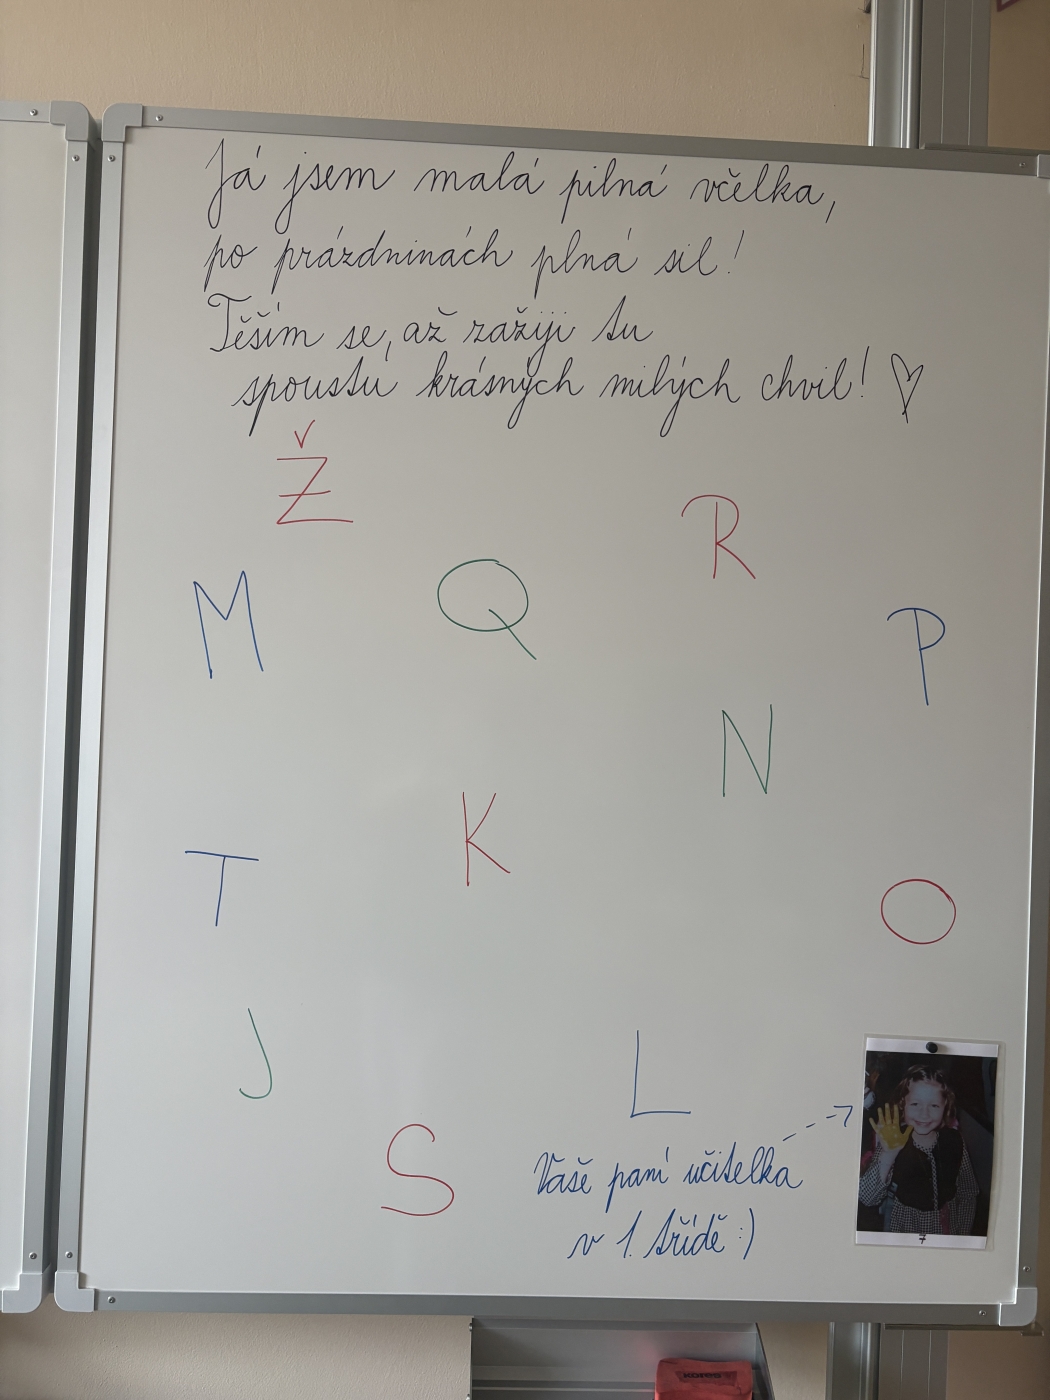 Já jsem malá pilná včelka,
po prázdninách plná sil!
Těším se, až zažiji tu
spoustu krásných milých chvil! ♡
Ž
R
M
Q
P
N
K
T
O
J
L
S
Vaše paní učitelka
v 1. třídě :)
7
KORES